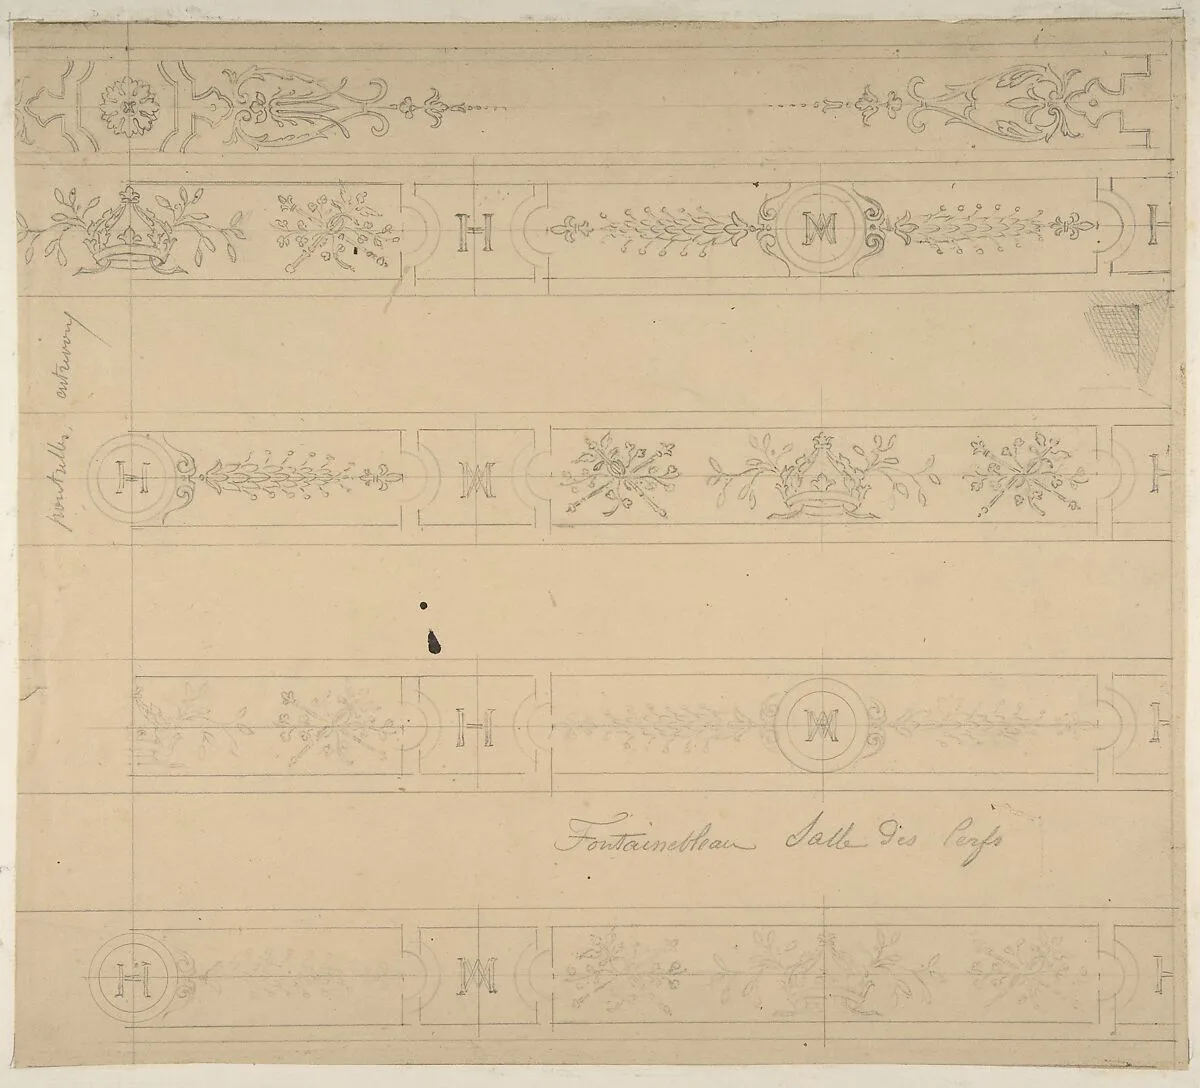 H M H
poutrelles, entrevous
H M H
H M H
Fontainebleau Salle des Cerfs
H M H